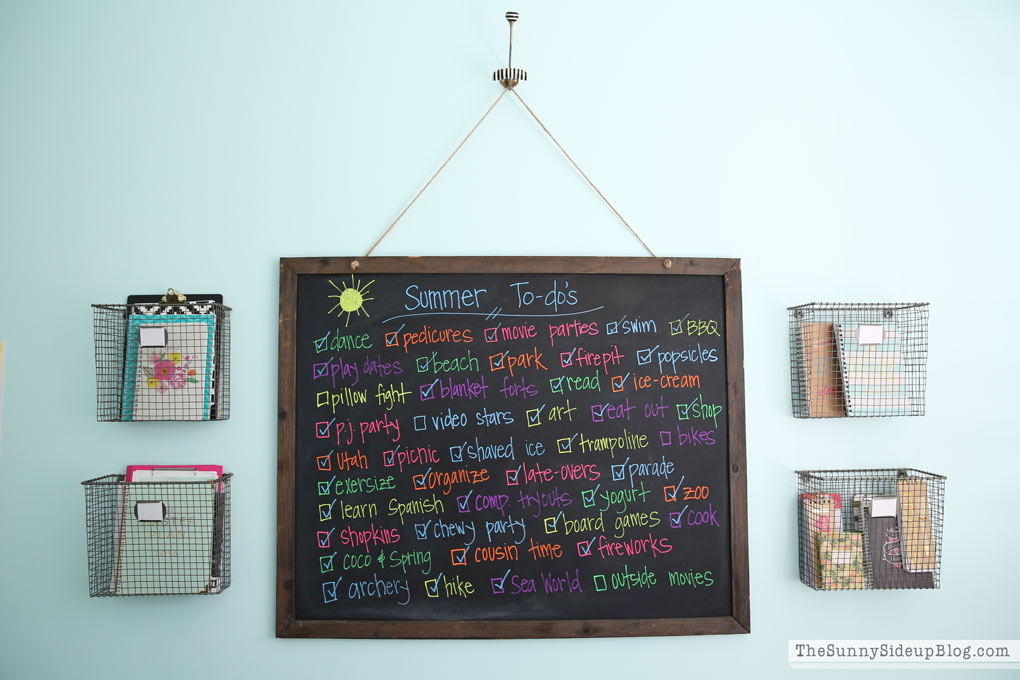 Summer To-do's
dance pedicures movie parties swim BBQ
play dates beach park firepit popsicles
pillow fight blanket forts read ice-cream
p.j. party video stars art eat out shop
Utah picnic shaved ice trampoline bikes
exersize organize late-overs parade
learn Spanish comp. tryouts yogurt zoo
shopkins chewy party board games cook
coco & Spring cousin time fireworks
archery hike Sea World outside movies
TheSunnySideupBlog.com